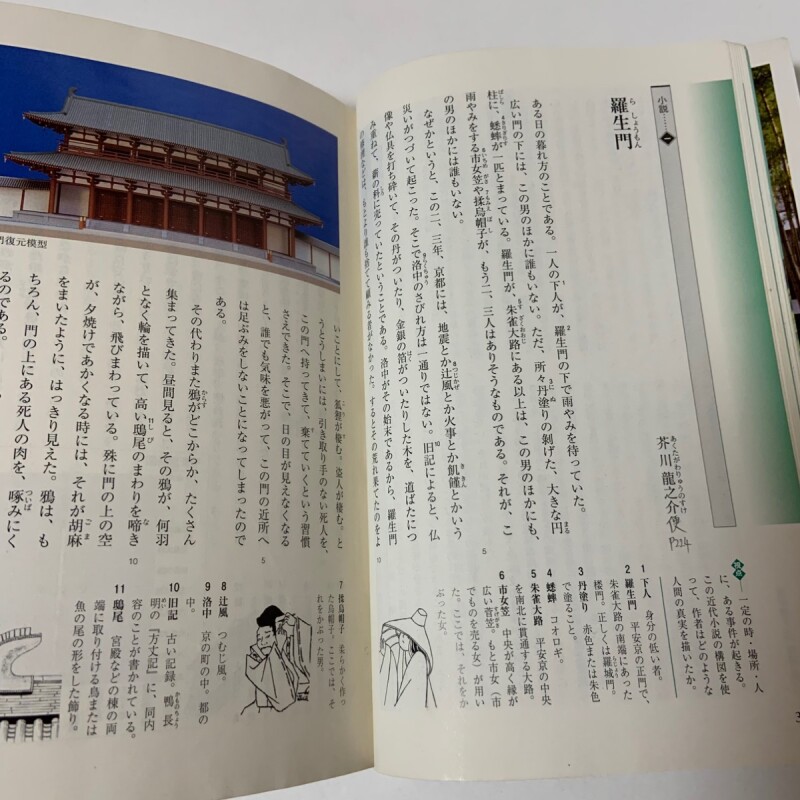 小説……一
羅生門
芥川龍之介
P224
ある日の暮れ方のことである。一人の下人が、羅生門の下で雨やみを待っていた。
広い門の下には、この男のほかに誰もいない。ただ、所々丹塗りの剝げた、大きな円
柱に、蟋蟀が一匹とまっている。羅生門が、朱雀大路にある以上は、この男のほかにも、
雨やみをする市女笠や揉烏帽子が、もう二、三人はありそうなものである。それが、こ
の男のほかには誰もいない。
なぜかというと、この二、三年、京都には、地震とか辻風とか火事とか飢饉とかいう
災いがつづいて起こった。そこで洛中のさびれ方は一通りではない。旧記によると、仏
像や仏具を打ち砕いて、その丹がついたり、金銀の箔がついたりした木を、道ばたにつ
み重ねて、薪の料に売っていたということである。洛中がその始末であるから、羅生門
の修理などは、もとより誰も捨てて顧みる者がなかった。するとその荒れ果てたのをよ
一定の時・場所・人
に、ある事件が起きる。
この近代小説の構図を使
って、作者はどのような
人間の真実を描いたか。
1 下人 身分の低い者。
2 羅生門 平安京の正門で、
朱雀大路の南端にあった
楼門。正しくは羅城門。
3 丹塗り 赤色または朱色
で塗ること。
4 蟋蟀 コオロギ。
5 朱雀大路 平安京の中央
を南北に貫通する大路。
6 市女笠 中央が高く縁が
広い菅笠。もと市女(市
でものを売る女)が用い
た。ここでは、それをか
ぶった女。
門復元模型
いことにして、狐狸が棲む。盗人が棲む。と
うとうしまいには、引き取り手のない死人を、
この門へ持ってきて、棄てていくという習慣
さえできた。そこで、日の目が見えなくなる
と、誰でも気味を悪がって、この門の近所へ
は足ぶみをしないことになってしまったので
ある。
その代わりまた鴉がどこからか、たくさん
集まってきた。昼間見ると、その鴉が、何羽
となく輪を描いて、高い鴟尾のまわりを啼き
ながら、飛びまわっている。殊に門の上の空
が、夕焼けであかくなる時には、それが胡麻
をまいたように、はっきり見えた。鴉は、も
ちろん、門の上にある死人の肉を、啄みにく
るのである。
7 揉烏帽子 柔らかく作っ
た烏帽子。ここでは、そ
れをかぶった男。
8 辻風 つむじ風。
9 洛中 京の町の中。都の
10 旧記 古い記録。鴨長
明の『方丈記』に、同内
容のことが書かれている。
11 鴟尾 宮殿などの棟の両
端に取り付ける鳥または
魚の尾の形をした飾り。